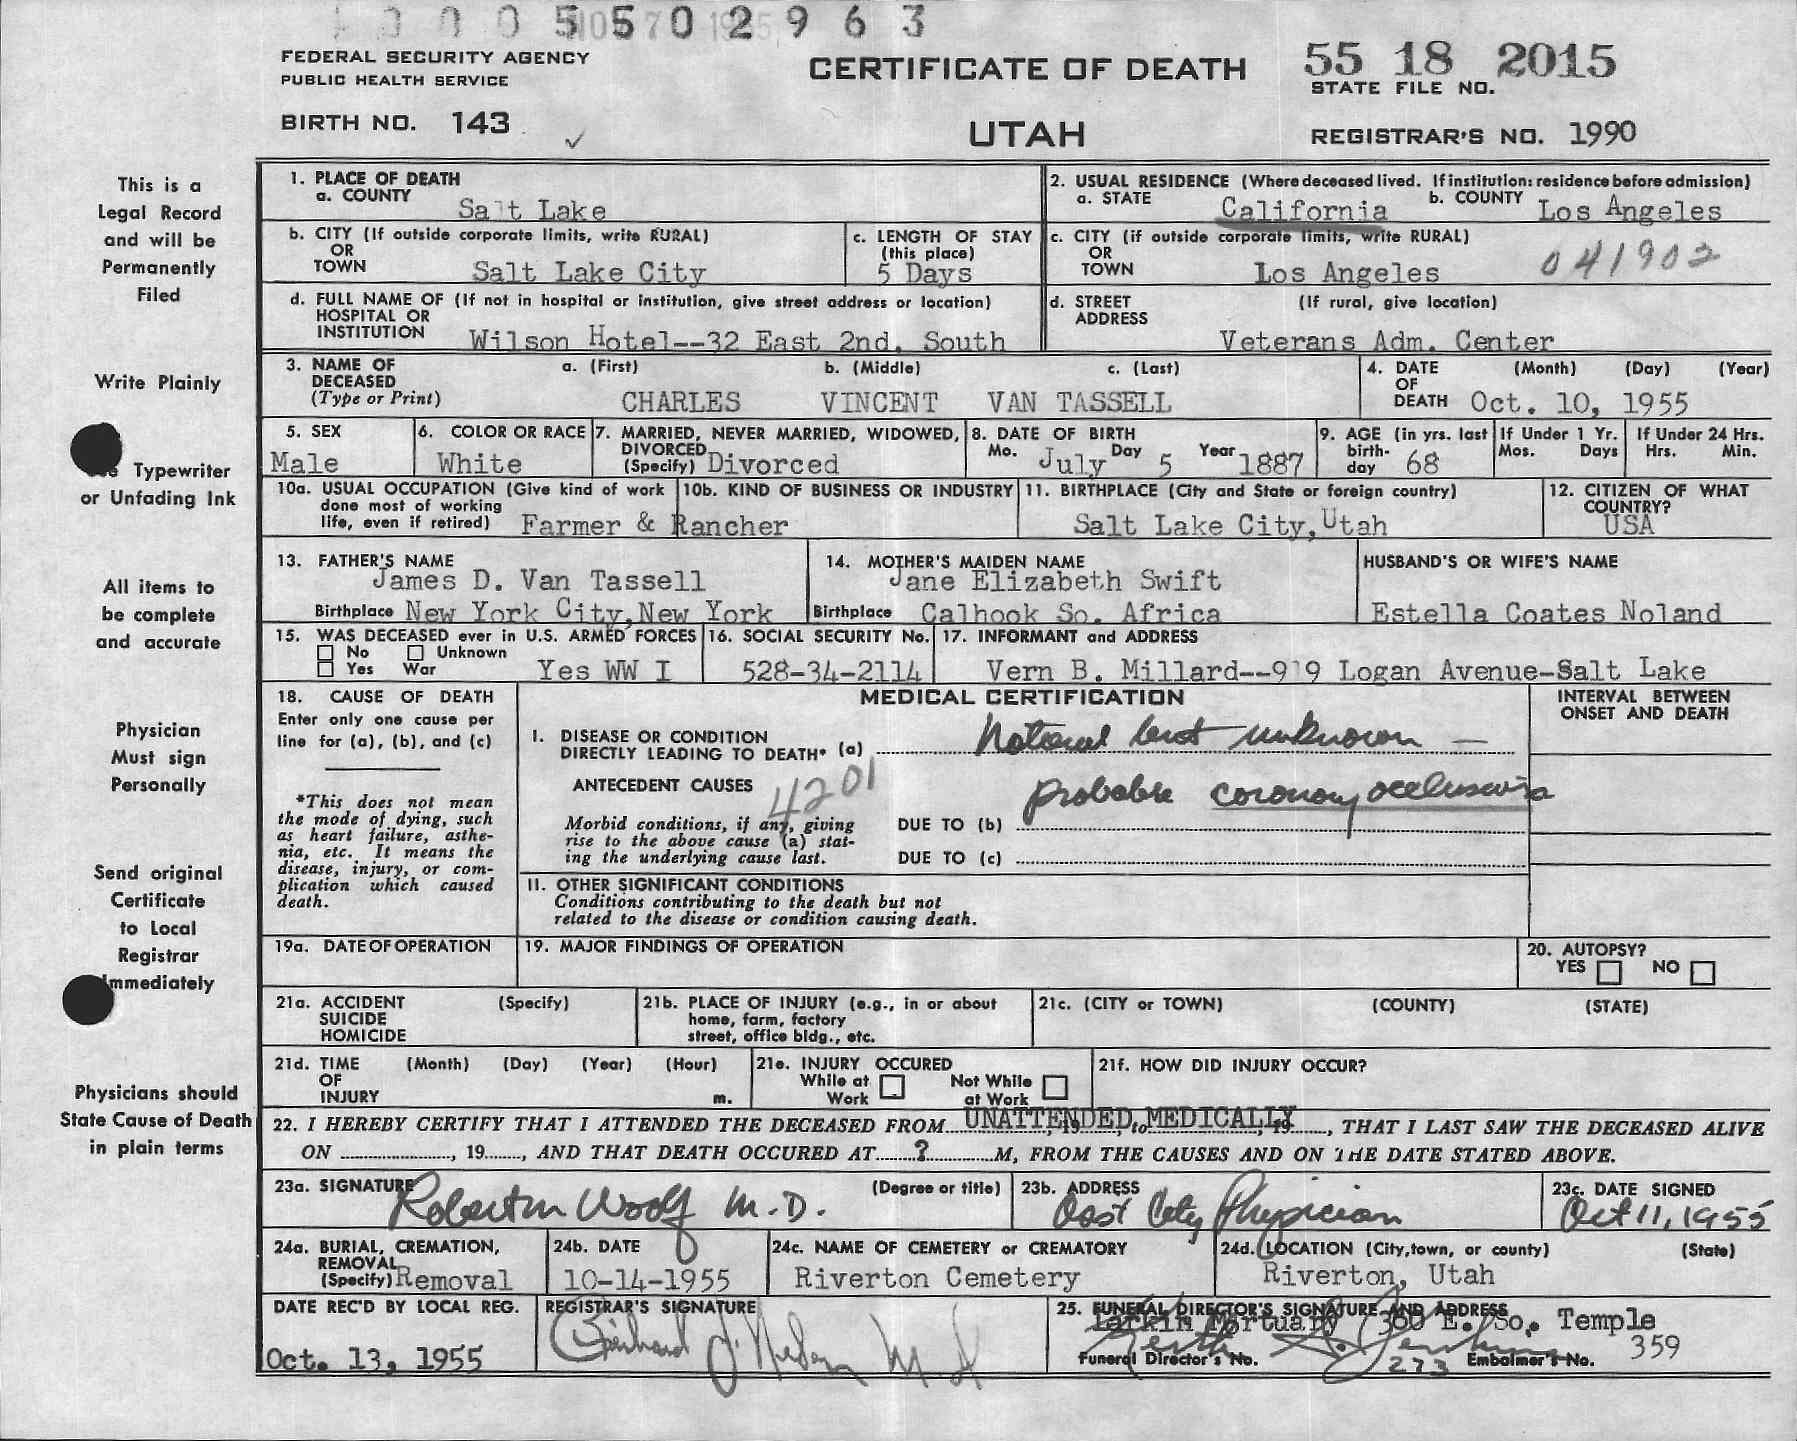 5502963
FEDERAL SECURITY AGENCY
PUBLIC HEALTH SERVICE
CERTIFICATE OF DEATH
55 18 2015
STATE FILE NO.
BIRTH NO. 143
UTAH
REGISTRAR'S NO. 1990
This is a
Legal Record
and will be
Permanently
Filed
Write Plainly
Typewriter
or Unfading Ink
All items to
be complete
and accurate
Physician
Must sign
Personally
Send original
Certificate
to Local
Registrar
Immediately
Physicians should
State Cause of Death
in plain terms
1. PLACE OF DEATH
a. COUNTY Salt Lake
2. USUAL RESIDENCE (Where deceased lived. If institution: residence before admission)
a. STATE California b. COUNTY Los Angeles
b. CITY (If outside corporate limits, write RURAL)
OR
TOWN Salt Lake City
c. LENGTH OF STAY
(this place)
5 Days
c. CITY (if outside corporate limits, write RURAL)
OR
TOWN Los Angeles 041902
d. FULL NAME OF (If not in hospital or institution, give street address or location)
HOSPITAL OR
INSTITUTION Wilson Hotel--32 East 2nd. South
d. STREET (If rural, give location)
ADDRESS
Veterans Adm. Center
3. NAME OF a. (First) b. (Middle) c. (Last)
DECEASED
(Type or Print) CHARLES VINCENT VAN TASSELL
4. DATE (Month) (Day) (Year)
OF
DEATH Oct. 10, 1955
5. SEX
Male
6. COLOR OR RACE
White
7. MARRIED, NEVER MARRIED, WIDOWED,
DIVORCED
(Specify) Divorced
8. DATE OF BIRTH
Mo. July Day 5 Year 1887
9. AGE (in yrs. last
birth-
day 68
If Under 1 Yr.
Mos. Days
If Under 24 Hrs.
Hrs. Min.
10a. USUAL OCCUPATION (Give kind of work
done most of working
life, even if retired) Farmer & Rancher
10b. KIND OF BUSINESS OR INDUSTRY
11. BIRTHPLACE (City and State or foreign country)
Salt Lake City, Utah
12. CITIZEN OF WHAT
COUNTRY?
USA
13. FATHER'S NAME
James D. Van Tassell
Birthplace New York City, New York
14. MOTHER'S MAIDEN NAME
Jane Elizabeth Swift
Birthplace Calhook So. Africa
HUSBAND'S OR WIFE'S NAME
Estella Coates Noland
15. WAS DECEASED ever in U.S. ARMED FORCES
No Unknown
Yes War Yes WW I
16. SOCIAL SECURITY No.
528-34-2114
17. INFORMANT and ADDRESS
Vern B. Millard--919 Logan Avenue-Salt Lake
18. CAUSE OF DEATH
Enter only one cause per
line for (a), (b), and (c)
*This does not mean
the mode of dying, such
as heart failure, asthe-
nia, etc. It means the
disease, injury, or com-
plication which caused
death.
MEDICAL CERTIFICATION
INTERVAL BETWEEN
ONSET AND DEATH
I. DISEASE OR CONDITION
DIRECTLY LEADING TO DEATH* (a) Natural but unknown —
ANTECEDENT CAUSES 4201
probable coronary occlusion
Morbid conditions, if any, giving
rise to the above cause (a) stat-
ing the underlying cause last.
DUE TO (b)
DUE TO (c)
II. OTHER SIGNIFICANT CONDITIONS
Conditions contributing to the death but not
related to the disease or condition causing death.
19a. DATE OF OPERATION
19. MAJOR FINDINGS OF OPERATION
20. AUTOPSY?
YES NO
21a. ACCIDENT (Specify)
SUICIDE
HOMICIDE
21b. PLACE OF INJURY (e.g., in or about
home, farm, factory
street, office bldg., etc.
21c. (CITY or TOWN) (COUNTY) (STATE)
21d. TIME (Month) (Day) (Year) (Hour)
OF
INJURY m.
21e. INJURY OCCURED
While at Work Not While at Work
21f. HOW DID INJURY OCCUR?
22. I HEREBY CERTIFY THAT I ATTENDED THE DECEASED FROM UNATTENDED, to MEDICALLY, 19, THAT I LAST SAW THE DECEASED ALIVE
ON , 19 , AND THAT DEATH OCCURED AT ? M, FROM THE CAUSES AND ON THE DATE STATED ABOVE.
23a. SIGNATURE (Degree or title)
Woolf M.D.
23b. ADDRESS
City Physician
23c. DATE SIGNED
Oct 11, 1955
24a. BURIAL, CREMATION,
REMOVAL
(Specify) Removal
24b. DATE
10-14-1955
24c. NAME OF CEMETERY or CREMATORY
Riverton Cemetery
24d. LOCATION (City, town, or county) (State)
Riverton, Utah
DATE REC'D BY LOCAL REG.
Oct. 13, 1955
REGISTRAR'S SIGNATURE
25. FUNERAL DIRECTOR'S SIGNATURE AND ADDRESS
Larkin Mortuary 360 E. So. Temple
Funeral Director's No. 273 Embalmer's No. 359